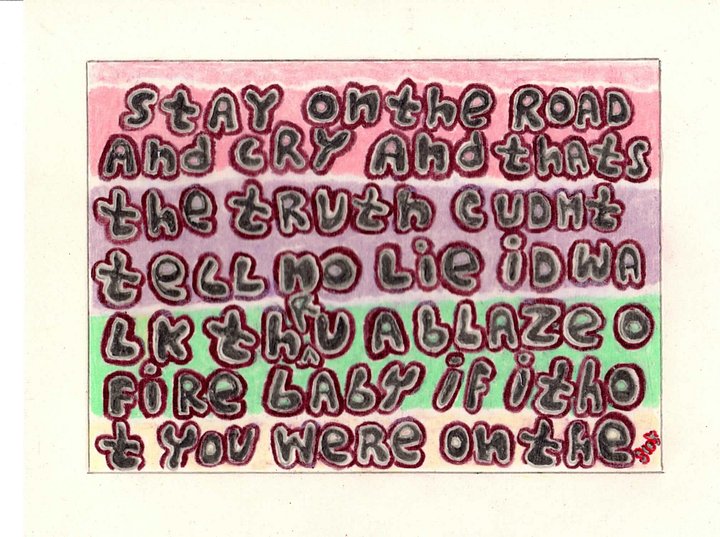 StAY ON the ROAD
And CRY And thats
the tRUth CUDNt
tELL NO LiE iD WA
LK thRU A BLAZE O
FiRE BABY iF ithO
t YOU WERE ON the